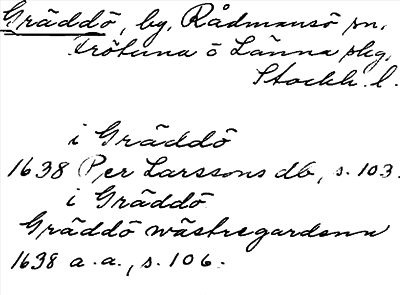 Gräddö, by, Rådmansö sn,
Frötuna o Länna skg,
Stockh. l.
i Gräddö
1638 Per Larssons db, s. 103.
i Gräddö
Gräddö wästregardenn
1638 a.a., s. 106.